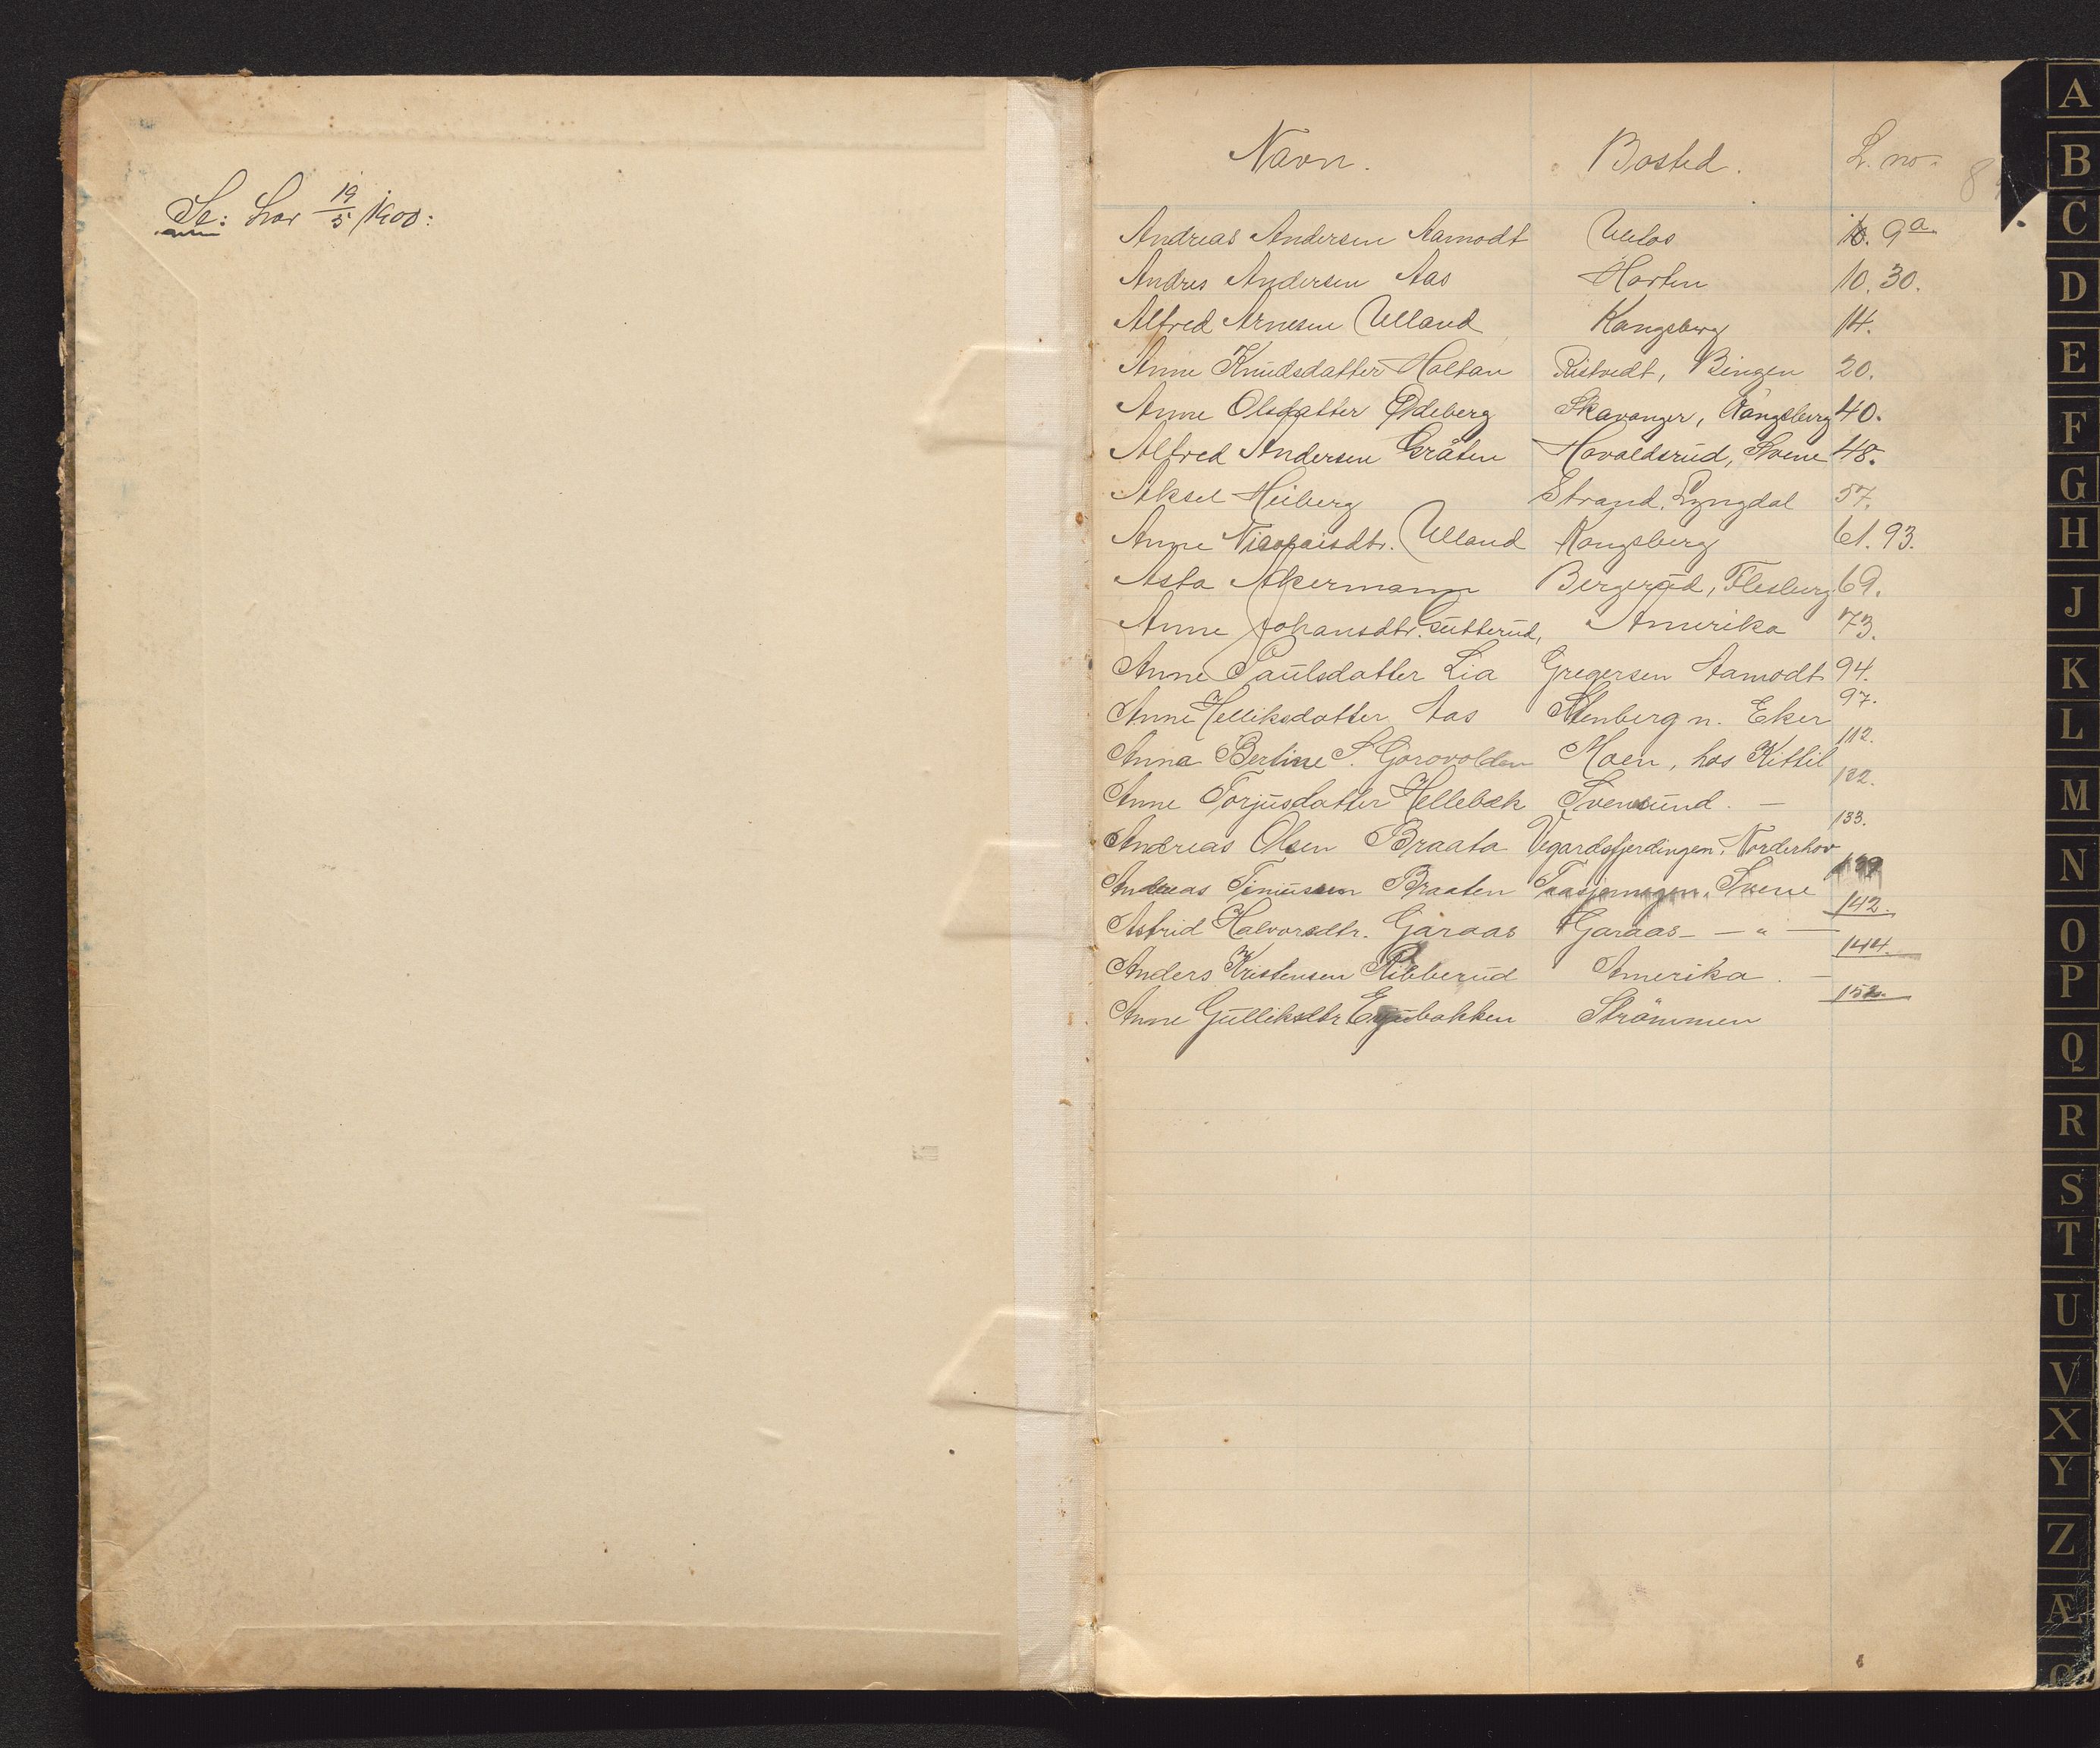 Se: Lov 19/5 1900:
Navn. Bosted. L. no. 8
Andreas Andersen Aamodt Uvlos 9a.
Andres Andersen Aas Horten 10. 30.
Alfred Arnesen Ulland Kongsberg 14.
Anne Knudsdatter Holtan Ristvedt, Bingen 20.
Anne Olsdatter Ødeberg Skavanger, Kongsberg 40.
Alfred Andersen Gråten Havaldsrud, Svene 48.
Aksel Heiberg Strand, Lyngdal 57.
Anne Nicolaisdtr. Ulland Kongsberg 61. 93.
Asta Akermann Bergerud, Flesberg 69.
Anne Johansdtr. Gutterud, Amerika 73.
Anne Paulsdatter Lia Gregersen Aamodt 94.
Anne Helliksdatter Aas Stenberg n. Eker 97.
Anna Bertine S. Gorovolden Moen, hos Kittil 112.
Anne Torjusdatter Hellebæk Svensund. — 122.
Andreas Olsen Braata Vegardsfjerdingen, Norderhov 133.
Andreas Tiniussen Braaten Svene 139
Astrid Halvorsdtr. Garaas Garaas — " — 142.
Anders Kristensen Ribberud Amerika. — 144.
Anne Gulliksdtr Strömmen 152.
A
B
C
D
E
F
G
H
J
K
L
M
N
O
P
Q
R
S
T
U
V
X
Y
Z
Æ